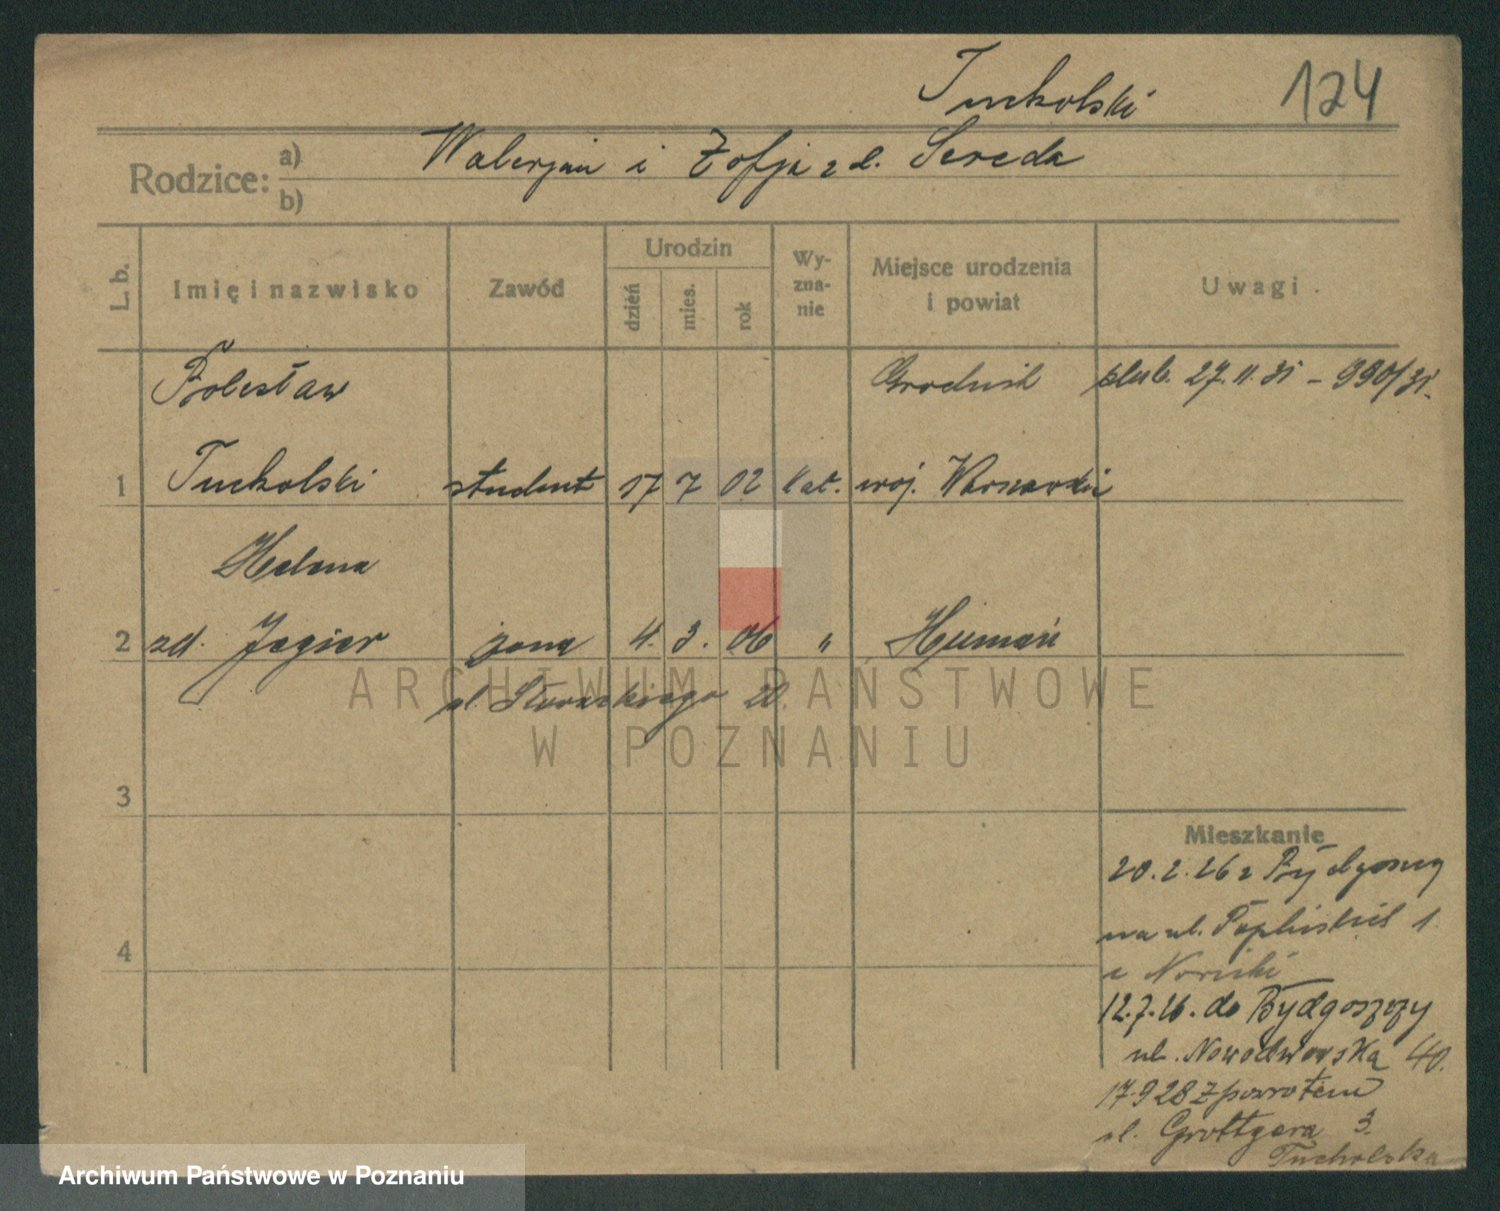 Tucholski 124
Rodzice: a) Walerjan i Zofja z d. Sereda
b)
L. b. Imię i nazwisko Zawód Urodzin dzień mies. rok Wy-zna-nie Miejsce urodzenia i powiat Uwagi
Bolesław Grodzisk ślub. 27.11.31 - 990/31.
1 Tucholski student 17 7 02 kat. woj. Warszawskie
Helena
2 zd. Jagier żona 4. 3. 06 " Humań
ul. Słowackiego 20.
ARCHIWUM PAŃSTWOWE
W POZNANIU
3
Mieszkanie
20.2.26 z Bydgoszczy
na ul. 1
4
u
12.7.26. do Bydgoszczy
ul. Nowodworska 40.
17.9 28 z powrotem
ul. Grottgera 3.
Tucholska
Archiwum Państwowe w Poznaniu